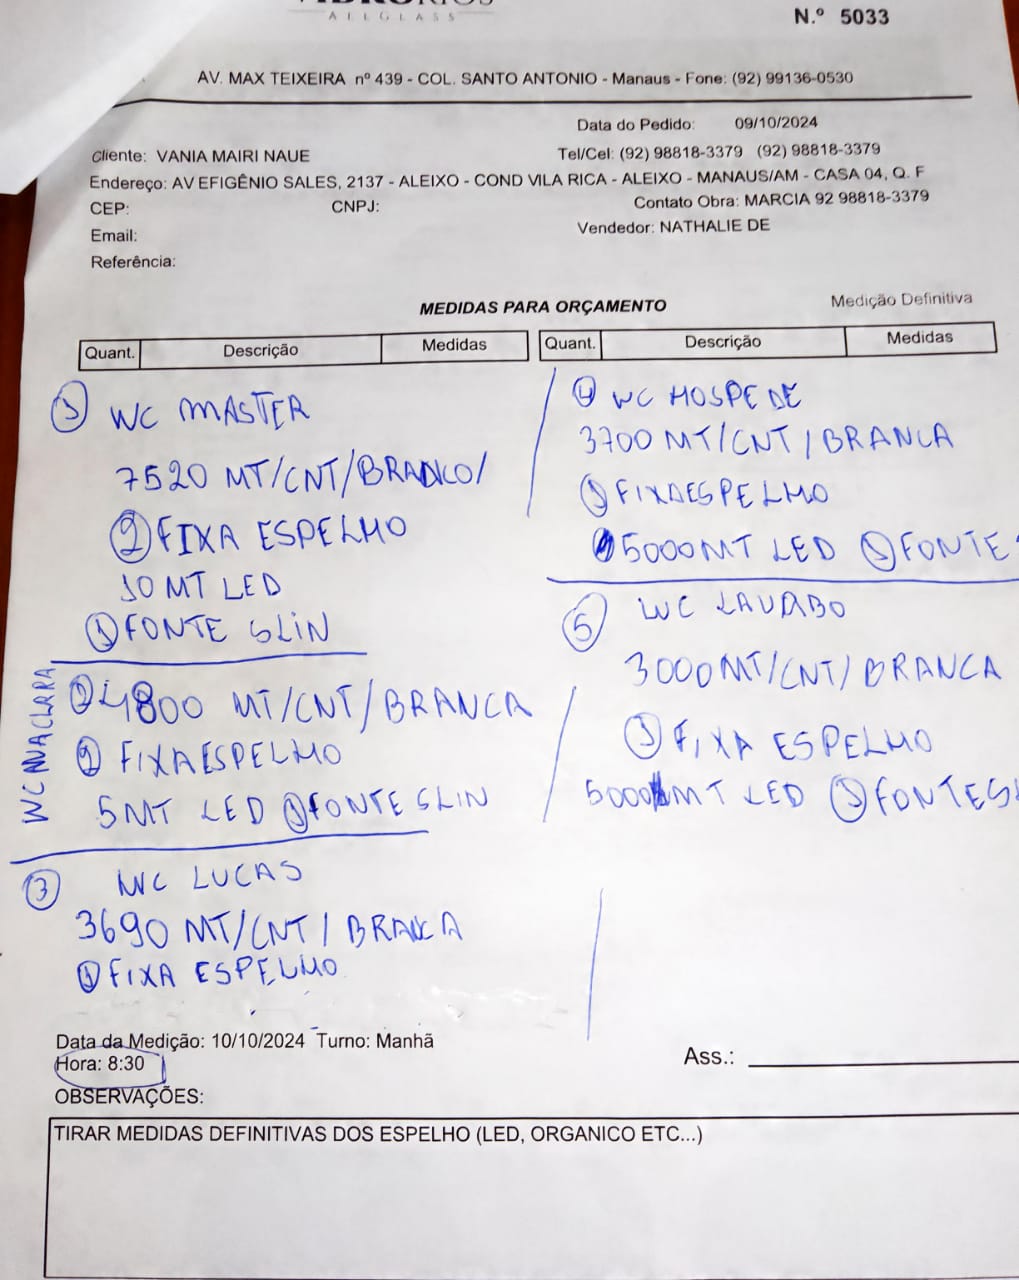 ALLGLASS
N.º 5033
AV. MAX TEIXEIRA nº 439 - COL. SANTO ANTONIO - Manaus - Fone: (92) 99136-0530
Data do Pedido: 09/10/2024
Cliente: VANIA MAIRI NAUE
Tel/Cel: (92) 98818-3379 (92) 98818-3379
Endereço: AV EFIGÊNIO SALES, 2137 - ALEIXO - COND VILA RICA - ALEIXO - MANAUS/AM - CASA 04, Q. F
CEP: CNPJ: Contato Obra: MARCIA 92 98818-3379
Email:
Vendedor: NATHALIE DE
Referência:
MEDIDAS PARA ORÇAMENTO
Medição Definitiva
Quant. Descrição Medidas
Quant. Descrição Medidas
1 WC MASTER
7520 MT/CNT/BRANCO/
2 FIXA ESPELHO
10 MT LED
1 FONTE SLIN
WC ANA CLARA
2 4800 MT/CNT/BRANCA
2 FIXA ESPELHO
5MT LED 1 FONTE SLIN
3 WC LUCAS
3690 MT/CNT/BRANCA
1 FIXA ESPELHO
4 WC HOSPEDE
3700 MT/CNT/BRANCA
1 FIXA ESPELHO
5000MT LED 1 FONTE
5 WC LAVABO
3000MT/CNT/BRANCA
1 FIXA ESPELHO
5000MT LED 1 FONTE SL
Data da Medição: 10/10/2024 Turno: Manhã
Hora: 8:30
Ass.:
OBSERVAÇÕES:
TIRAR MEDIDAS DEFINITIVAS DOS ESPELHO (LED, ORGANICO ETC...)